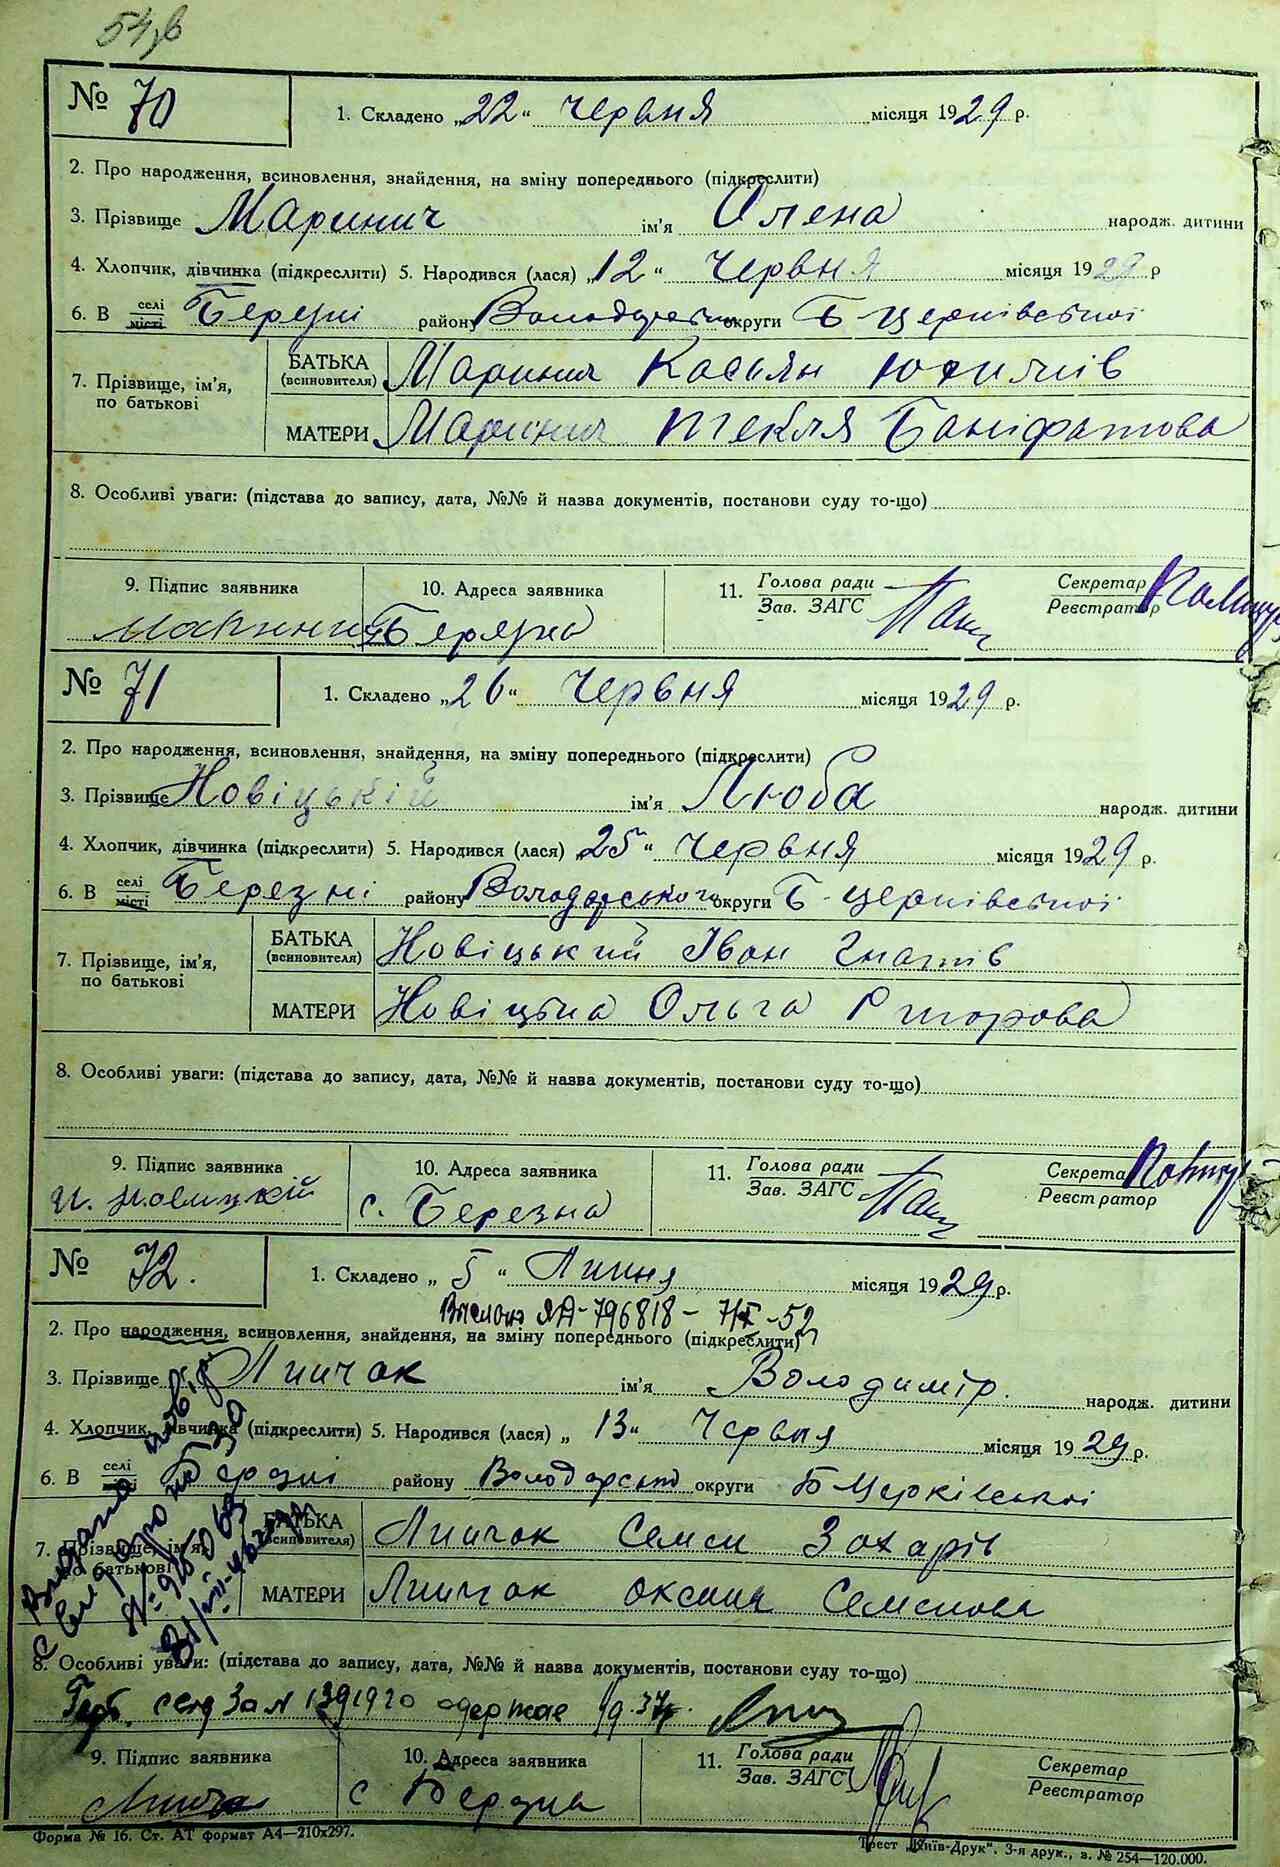 54 зв
№ 70 1. Складено „22“ червня місяця 1929 р.
2. Про народження, всиновлення, знайдення, на зміну попереднього (підкреслити)
3. Прізвище Маринич ім'я Олена народж. дитини
4. Хлопчик, дівчинка (підкреслити) 5. Народився (лася) „12“ червня місяця 1929 р
6. В селі місті Березні району округи Б Церківської
7. Прізвище, ім'я, по батькові БАТЬКА (всиновителя) Маринич Касьян Юхимів
МАТЕРИ Маринич Текля Баніфатова
8. Особливі уваги: (підстава до запису, дата, №№ й назва документів, постанови суду то-що)
9. Підпис заявника 10. Адреса заявника 11. Голова ради Зав. ЗАГС Секретар Реєстратор
Маринич Березна
№ 71 1. Складено „26“ червня місяця 1929 р.
2. Про народження, всиновлення, знайдення, на зміну попереднього (підкреслити)
3. Прізвище Новіцькій ім'я Люба народж. дитини
4. Хлопчик, дівчинка (підкреслити) 5. Народився (лася) „25“ червня місяця 1929 р.
6. В селі місті Березні району Володарського округи Б-Церківської
7. Прізвище, ім'я, по батькові БАТЬКА (всиновителя) Новіцький Іван Гнатів
МАТЕРИ Новіцька Ольга
8. Особливі уваги: (підстава до запису, дата, №№ й назва документів, постанови суду то-що)
9. Підпис заявника 10. Адреса заявника 11. Голова ради Зав. ЗАГС Секретар Реєстратор
И. Новицкій с. Березна
№ 72. 1. Складено „5“ Липня місяця 1929 р.
ЯА-796818-
2. Про народження, всиновлення, знайдення, на зміну попереднього (підкреслити)
3. Прізвище Липчак ім'я Володимір. народж. дитини
4. Хлопчик, дівчинка (підкреслити) 5. Народився (лася) „13“ Червня місяця 1929 р.
6. В селі місті району Володарського округи Б Церківської
7. Прізвище, ім'я, по батькові БАТЬКА (всиновителя) Липчак Семен Захарів
МАТЕРИ Липчак Оксана Семенова
8. Особливі уваги: (підстава до запису, дата, №№ й назва документів, постанови суду то-що)
за №
9. Підпис заявника 10. Адреса заявника 11. Голова ради Зав. ЗАГС Секретар Реєстратор
с Берізна
Форма № 16. Ст. АТ формат А4—210х297. Трест „Київ-Друк“. 3-я друк., з. № 254—120.000.